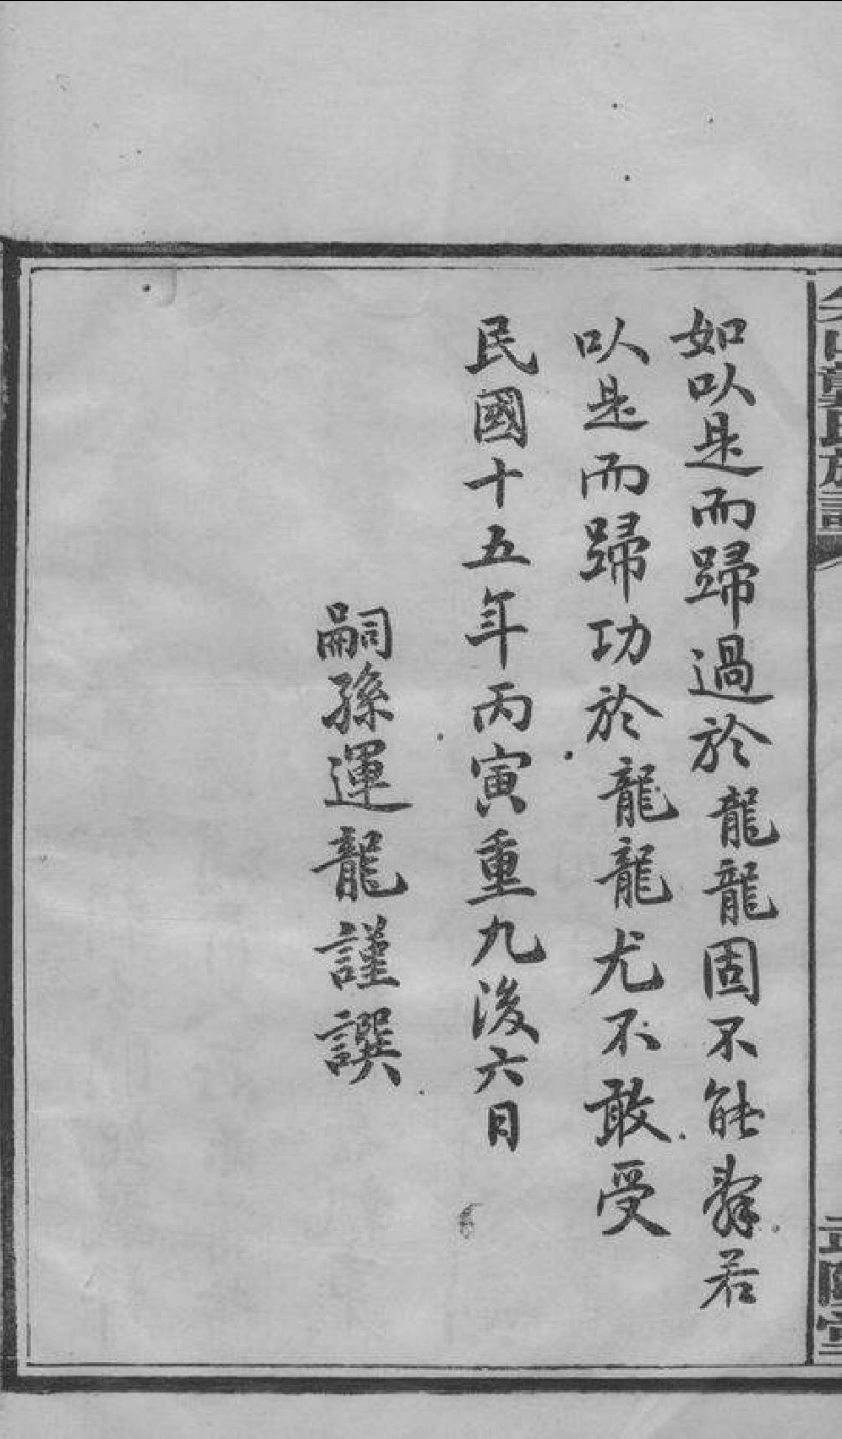 如以是而歸過於龍龍固不能辭若
以是而歸功於龍龍尤不敢受
民國十五年丙寅重九後六日
嗣孫運龍謹譔
龔氏族譜